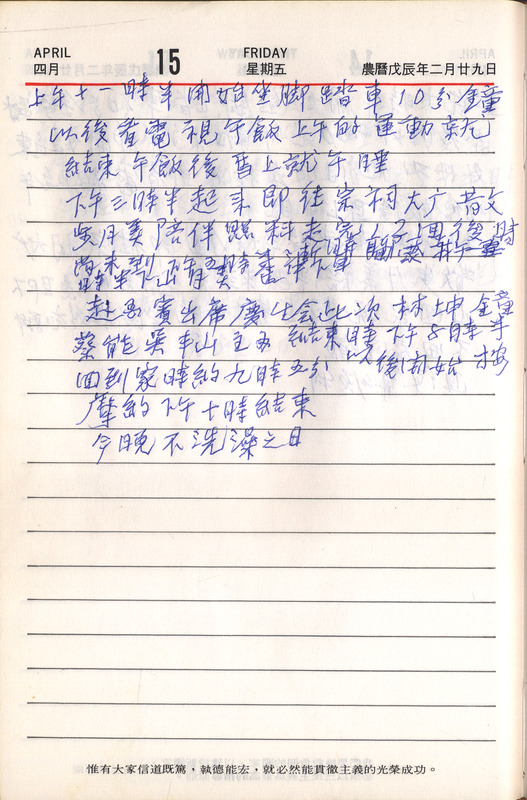 APRIL 15 FRIDAY
四月 星期五 農曆戊辰年二月廿九日
上午十一時半開始坐脚踏車10分鐘
以後看電視午飯上午的運動就
結束午飯後舊上就午睡
下午三時半起來即往宗祠大广散
步月美陪伴照料走完12回後
時
赴馬賓出席慶生会此次林坤鐘
蔡能吳半山主办結束時下午8時半
回到家時約九時五分以後開始按
摩約下午十時結束
今晚不洗澡之日
惟有大家信道既篤，執德能宏，就必然能貫徹主義的光榮成功。